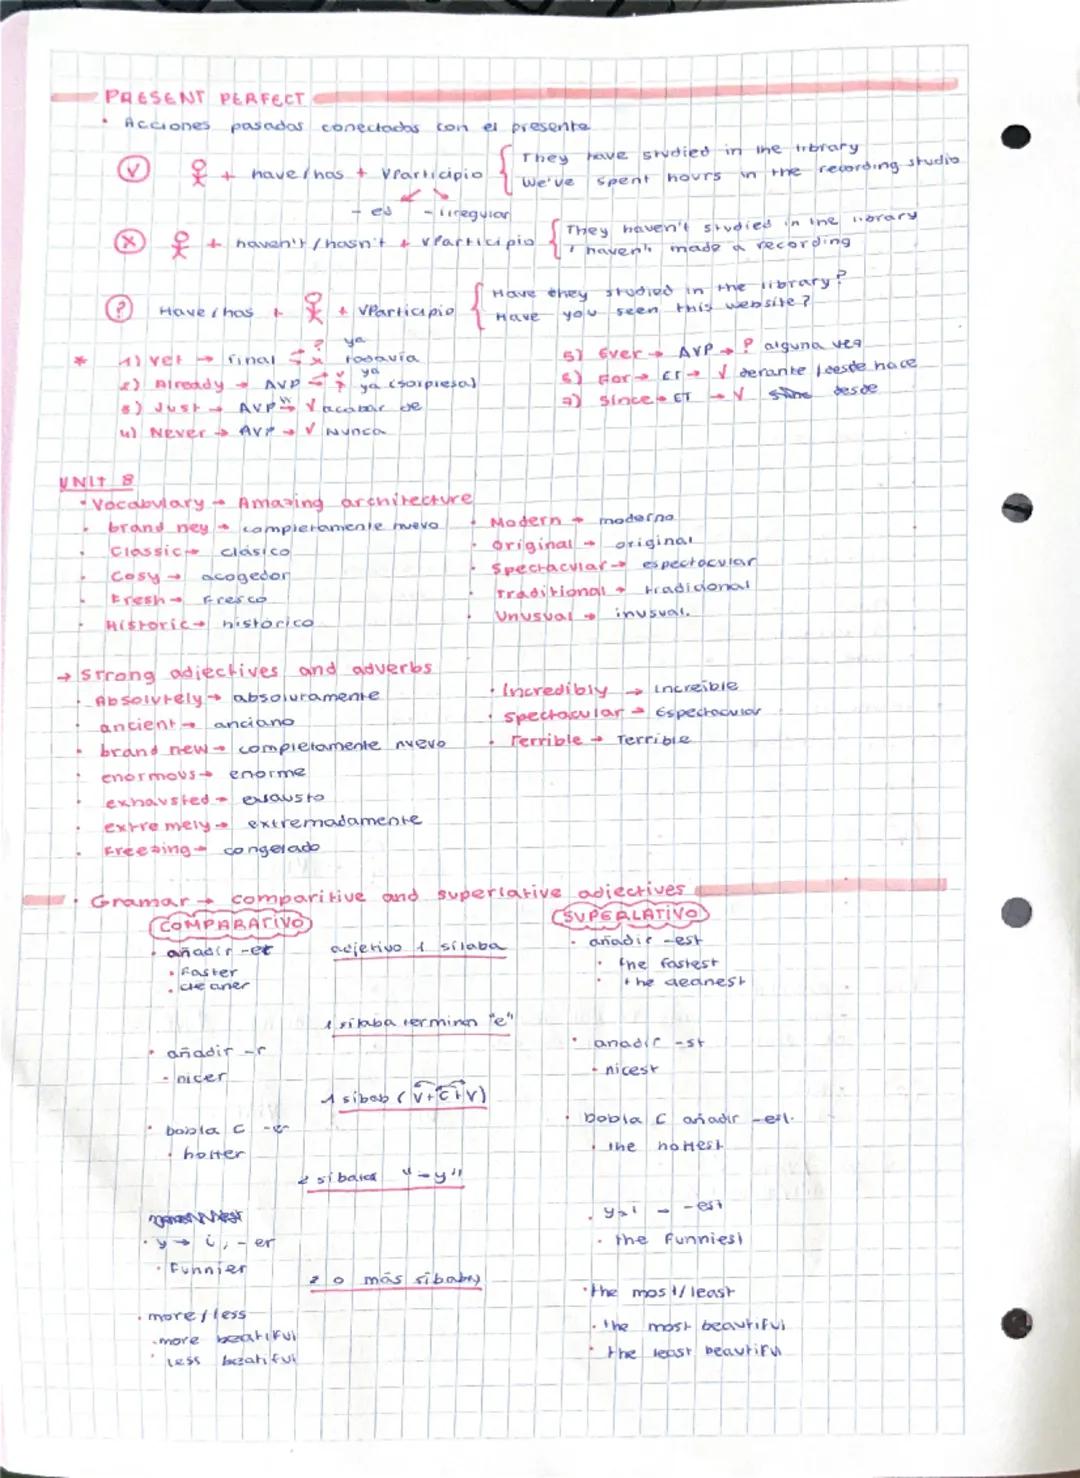 PRESENT PERFECT
• Acciones pasadas conectadas con el presente
(V) + have/has + VParticipio { They have studied in the library
We've spent hours in the recording studio
- ed - irregular
(X) + haven't/hasn't + VParticipio { They haven't studied in the library
I haven't made a recording
(?) Have/has + + VParticipio { Have they studied in the library?
Have you seen this website?
* 1) Yet → final → ? ya
x todavía
2) Already → AVP → √ ya
? ya (sorpresa)
3) Just → AVP → √ acabar de
4) Never → AVP → √ Nunca
5) Ever → AVP → ? alguna vez
6) For → CT → √ derante / desde hace
7) Since → CT → √ desde
UNIT 8
• Vocabulary → Amazing architecture
• brand ney → completamente nuevo
• Classic → clásico
• Cosy → acogedor
• Fresh → Fresco
• Historic → histórico
• Modern → moderno
• Original → original
• Spectacular → espectacular
• Traditional → tradicional
• Unusual → inusual.
→ Strong adjectives and adverbs
• Absolutely → absoluramente
• ancient → anciano
• brand new → completamente nuevo
• enormous → enorme
• exhausted → exausto
• extremely → extremadamente
• Freezing → congelado
• Incredibly → increíble
• Spectacular → Espectacular
• Terrible → Terrible
• Gramar → comparitive and superlative adjectives
COMPARATIVO
SUPERLATIVO
adjetivo 1 sílaba
• añadir -er
• Faster
• cleaner
• añadir -est
• the fastest
• the cleanest
1 sílaba termina "e"
• añadir -r
- nicer
• anadir -st
- nicest
1 sibab (V+C+V)
• dobla C -er
• hotter
• Dobla C añadir -est.
• the hottest
2 sibalas "-y"
• y → i, -er
• Funnier
• y>i → -est
• the Funniest
2 o más sibabas
• more/less
• more beatiful
• less beatiful
• the most/least
• the most beautiful
• the least beautiful